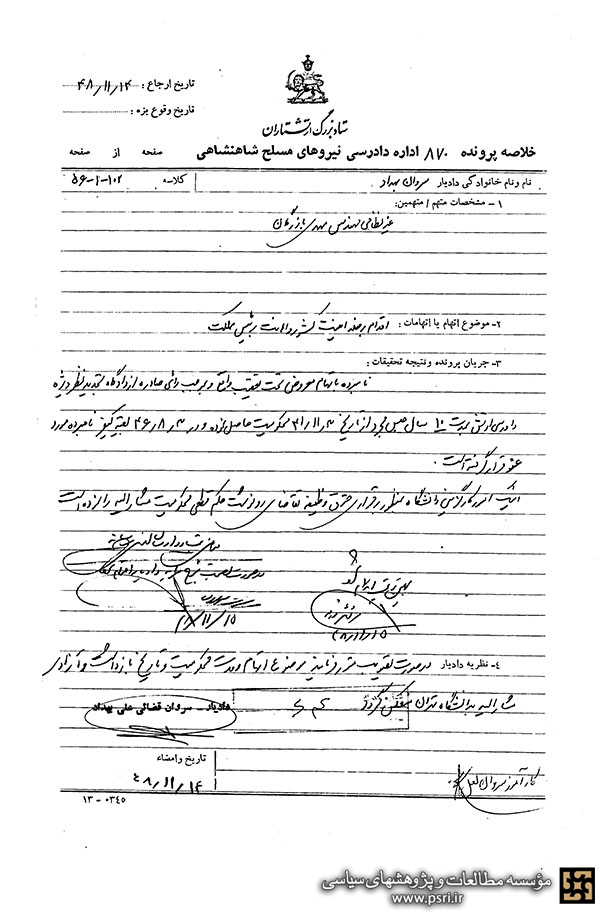 تاریخ ارجاع : ۴۸/۱۱/۱۴
تاریخ وقوع بزه :
ستاد بزرگ ارتشتاران
خلاصه پرونده ۸۷۰ اداره دادرسی نیروهای مسلح شاهنشاهی صفحه از صفحه
نام و نام خانوادگی دادیار سروان بهداد کلاسه ۱۰۲-۲-۵۶
۱- مشخصات متهم / متهمین:
غیر نظامی مهندس مهدی بازرگان
۲- موضوع اتهام یا اتهامات : اقدام بر ضد امنیت کشور و اهانت به رئیس مملکت
۳- جریان پرونده ونتیجه تحقیقات :
نامبرده باتهام معروض تحت تعقیب واقع و بموجب رأی صادره از دادگاه تجدید نظر ویژه
دادرسی ارتش بمدت ۱۰ سال حبس مجرد از تاریخ ۴۱/۱۱/۳ محکومیت حاصل نموده و در ۴۶/۸/۳ بقیه کیفر نامبرده مورد
عفو قرار گرفته است .
اینک امور کارگزینی دانشگاه بمنظور برقراری حقوق وظیفه تقاضای رونوشت حکم قطعی محکومیت مشارالیه را نموده است
۴۸/۱۱/۱۵
۴۸/۱۱/۱۵
۴- نظریه دادیار در صورت تصویب مقرر فرمایند موضوع اتهام و مدت محکومیت و تاریخ بازداشت و آزادی
مشارالیه بدانشگاه تهران منعکس گردد
دادیار - سروان قضائی علی بهداد
تاریخ وامضاء
۴۸/۱۱/۱۴
کارآموز سروان
۱۳ - ۰۳۴۵
مؤسسه مطالعات و پژوهشهای سیاسی
www.psri.ir